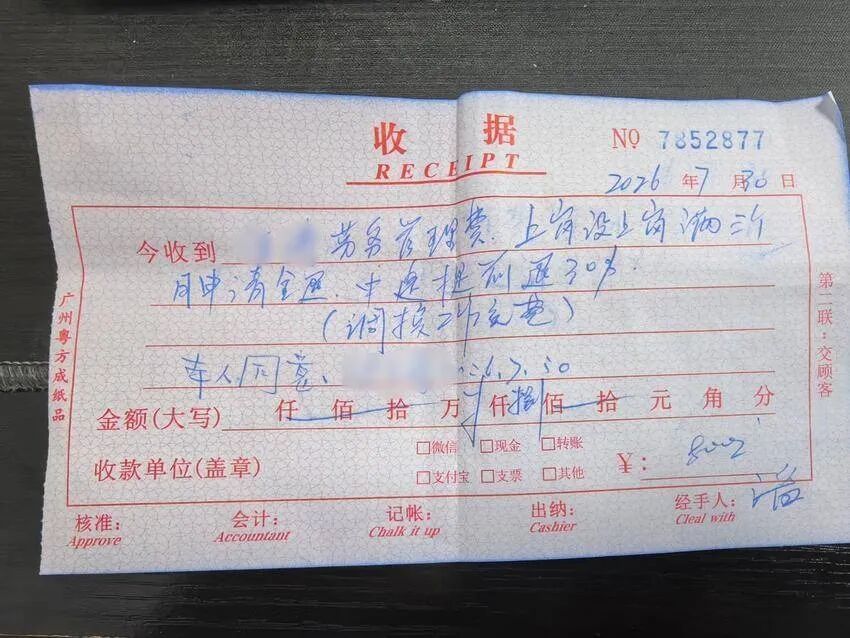 收 据
RECEIPT
NO 7852877
2026年7月30日
今收到 劳务管理费。上岗没上岗满三个
月申请全退、中途提前退30%.
(调换工作免费)
本人同意、 26.7.30
金额(大写) 仟 佰 拾 万 仟 佰 拾 元 角 分
收款单位(盖章)
□微信 □现金 □转账
□支付宝 □支票 □其他
¥:
核准: 会计: 记帐: 出纳: 经手人:
Approve Accountant Chalk it up Cashier Cleal with
广州粤方成纸品
第二联:交顾客